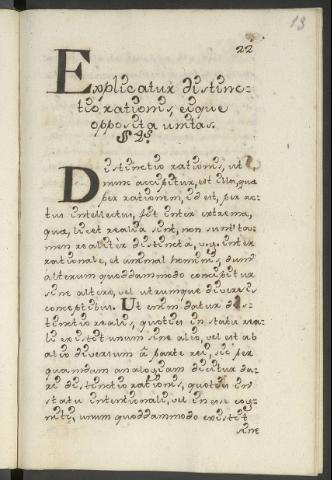 13
22
Explicatur distinc-
tio rationis, eique
opposita unitas.
§ 2º
Distinctio rationis, ut
nunc accipitur, est illa, quæ
per rationem, id est, per ac-
tus intellectus, fit inter extrema,
quæ, licet realia sint, non sunt ta-
men realiter distincta, v.g. inter
rationale, et animal hominis, dum
alterum quoddammodo concipitur
sine altero, vel utrumque diversis
conceptibus. Ut enim datur dis-
tinctio realis, quoties in statu rea-
li existit unum sine alio, vel est ab
alio diversum à parte rei, sic per
quamdam analogiam dicitur da-
ri distinctio rationis, quoties in
statu intentionali, vel in esse cog-
nito, unum quoddammodo existit
sine